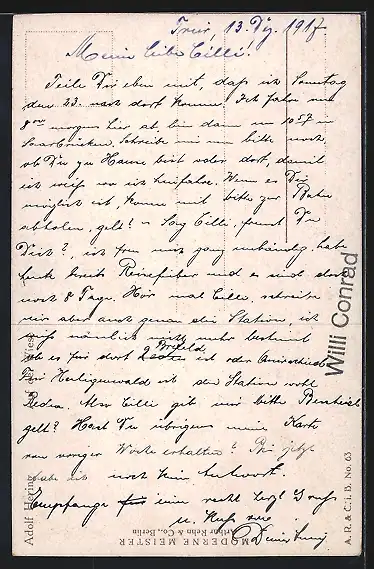 Trier, 13. Dez. 1917
Meine liebe Cilli!
Teile Dir eben mit, daß ich Sonntag
den 23. nach dort komme. Ich fahre um
8 morgens hier ab, bin dann um 10 57 in
Saarbrücken. Schreibe mir nun bitte noch,
ob Du zu Hause bist oder dort, damit
ich weiß wo ich hinfahre. Wenn es Dir
möglich ist, komme mich bitte zur Bahn
abholen, gelt? – Sag Cilli, freust Du
Dich?, ich freu mich ganz unbändig, habe
heute bereits Reisefieber und es sind doch
noch 8 Tage. Hör mal Cilli, schreibe
mir aber auch genau die Station, ich
weiß nämlich nicht mehr bestimmt
ob es für dort ist oder
Für Heiligenwald ist die Station wohl
Reden. Also Cilli gib mir bitte Bescheid
gelt? Hast Du übrigens meine Karte
von voriger Woche erhalten? Bis jetzt
habe ich noch keine Antwort.
Empfange nun recht herzl. Gruß
u. Kuss von
Deinem
Willi Conrad
Adolf Hering
MODERNE MEISTER
Arthur Rehn & Co., Berlin
A. R. & C. i. B. No. 63